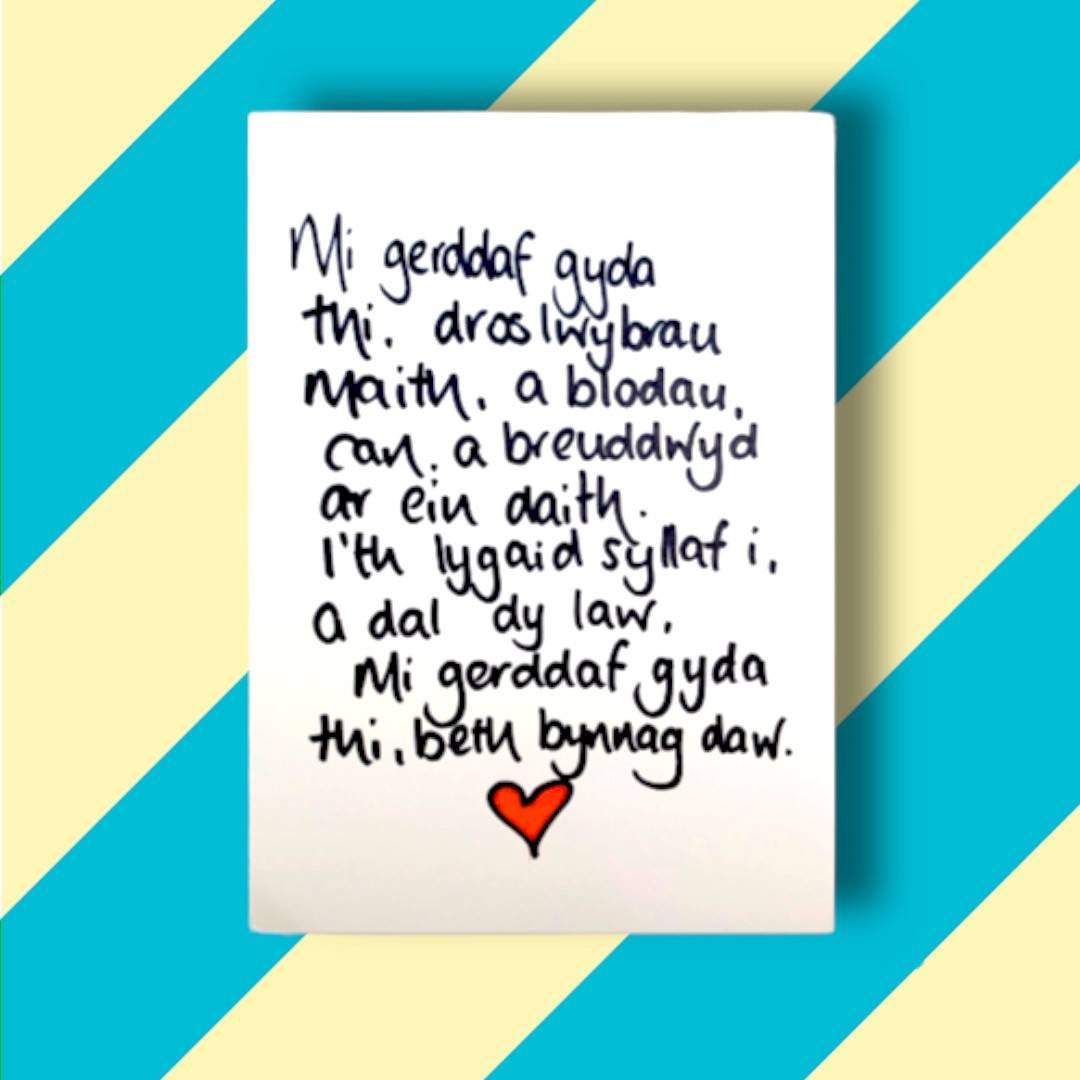 Mi gerddaf gyda
thi, dros lwybrau
maith, a blodau,
can, a breuddwyd
ar ein daith.
I'th lygaid syllaf i,
a dal dy law,
Mi gerddaf gyda
thi, beth bynnag daw.